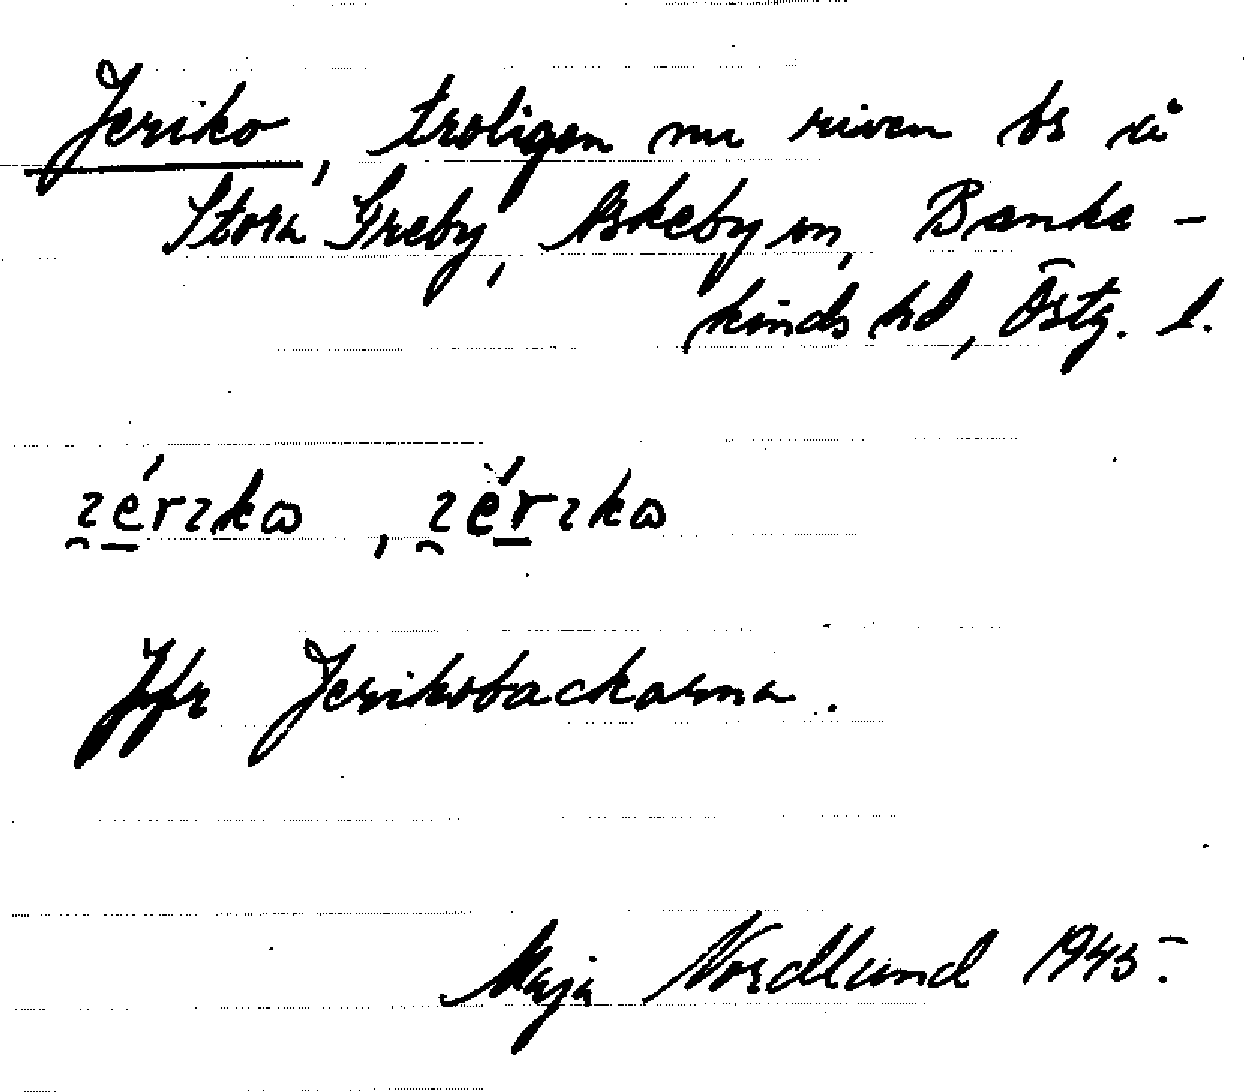 Jeriko, troligen nu riven bs å
Stora Greby, Askeby sn, Banke-
kinds hd, Östg. l.
Jfr Jerikobackarna.
Maja Nordlund 1945.